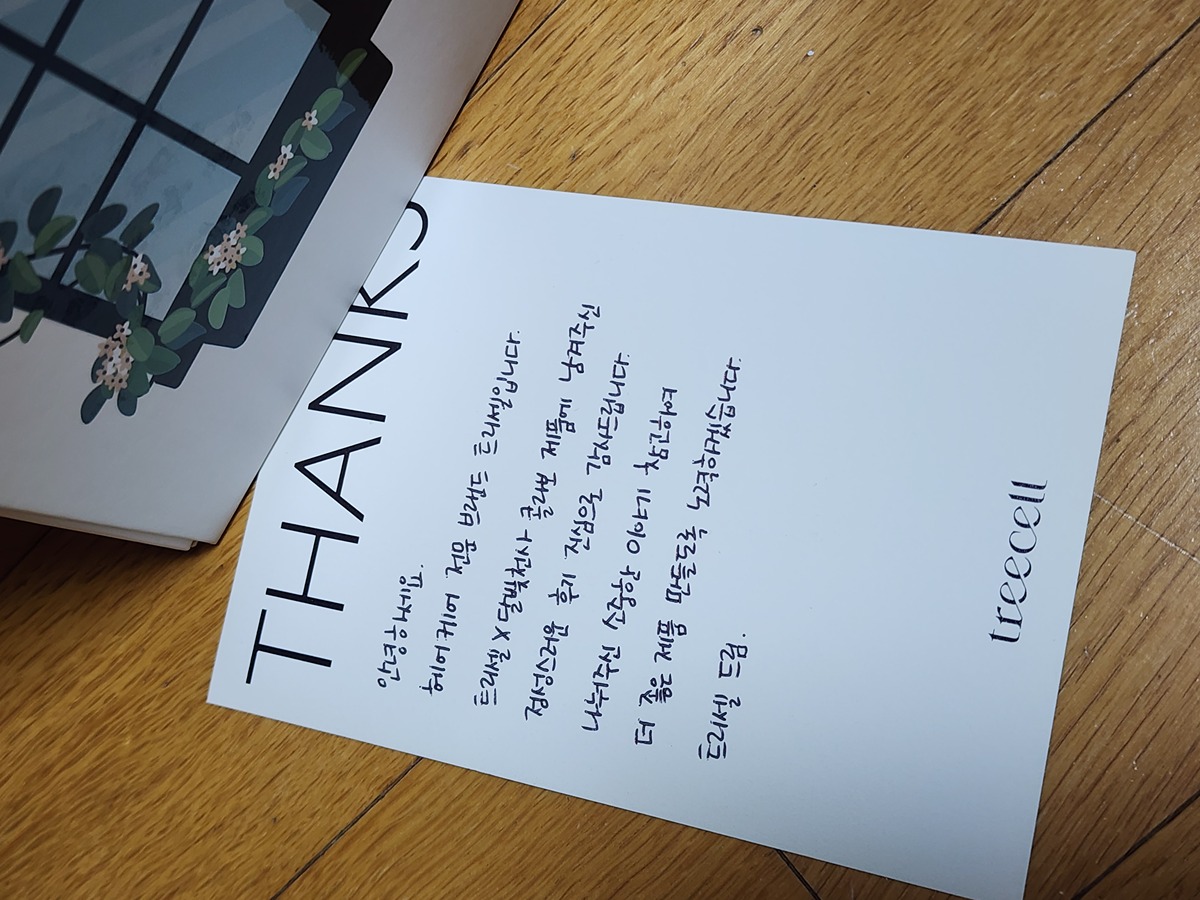 THANKS
안녕하세요.
헤어케어 전문 브랜드 트리셀입니다.
트리셀 X 제품에 남겨주신
정성스러운 후기 진심으로 감사드립니다.
나누어주신 소중한 이야기
더 좋은 제품 만들도록 노력하겠습니다.
트리셀 드림.
treecell